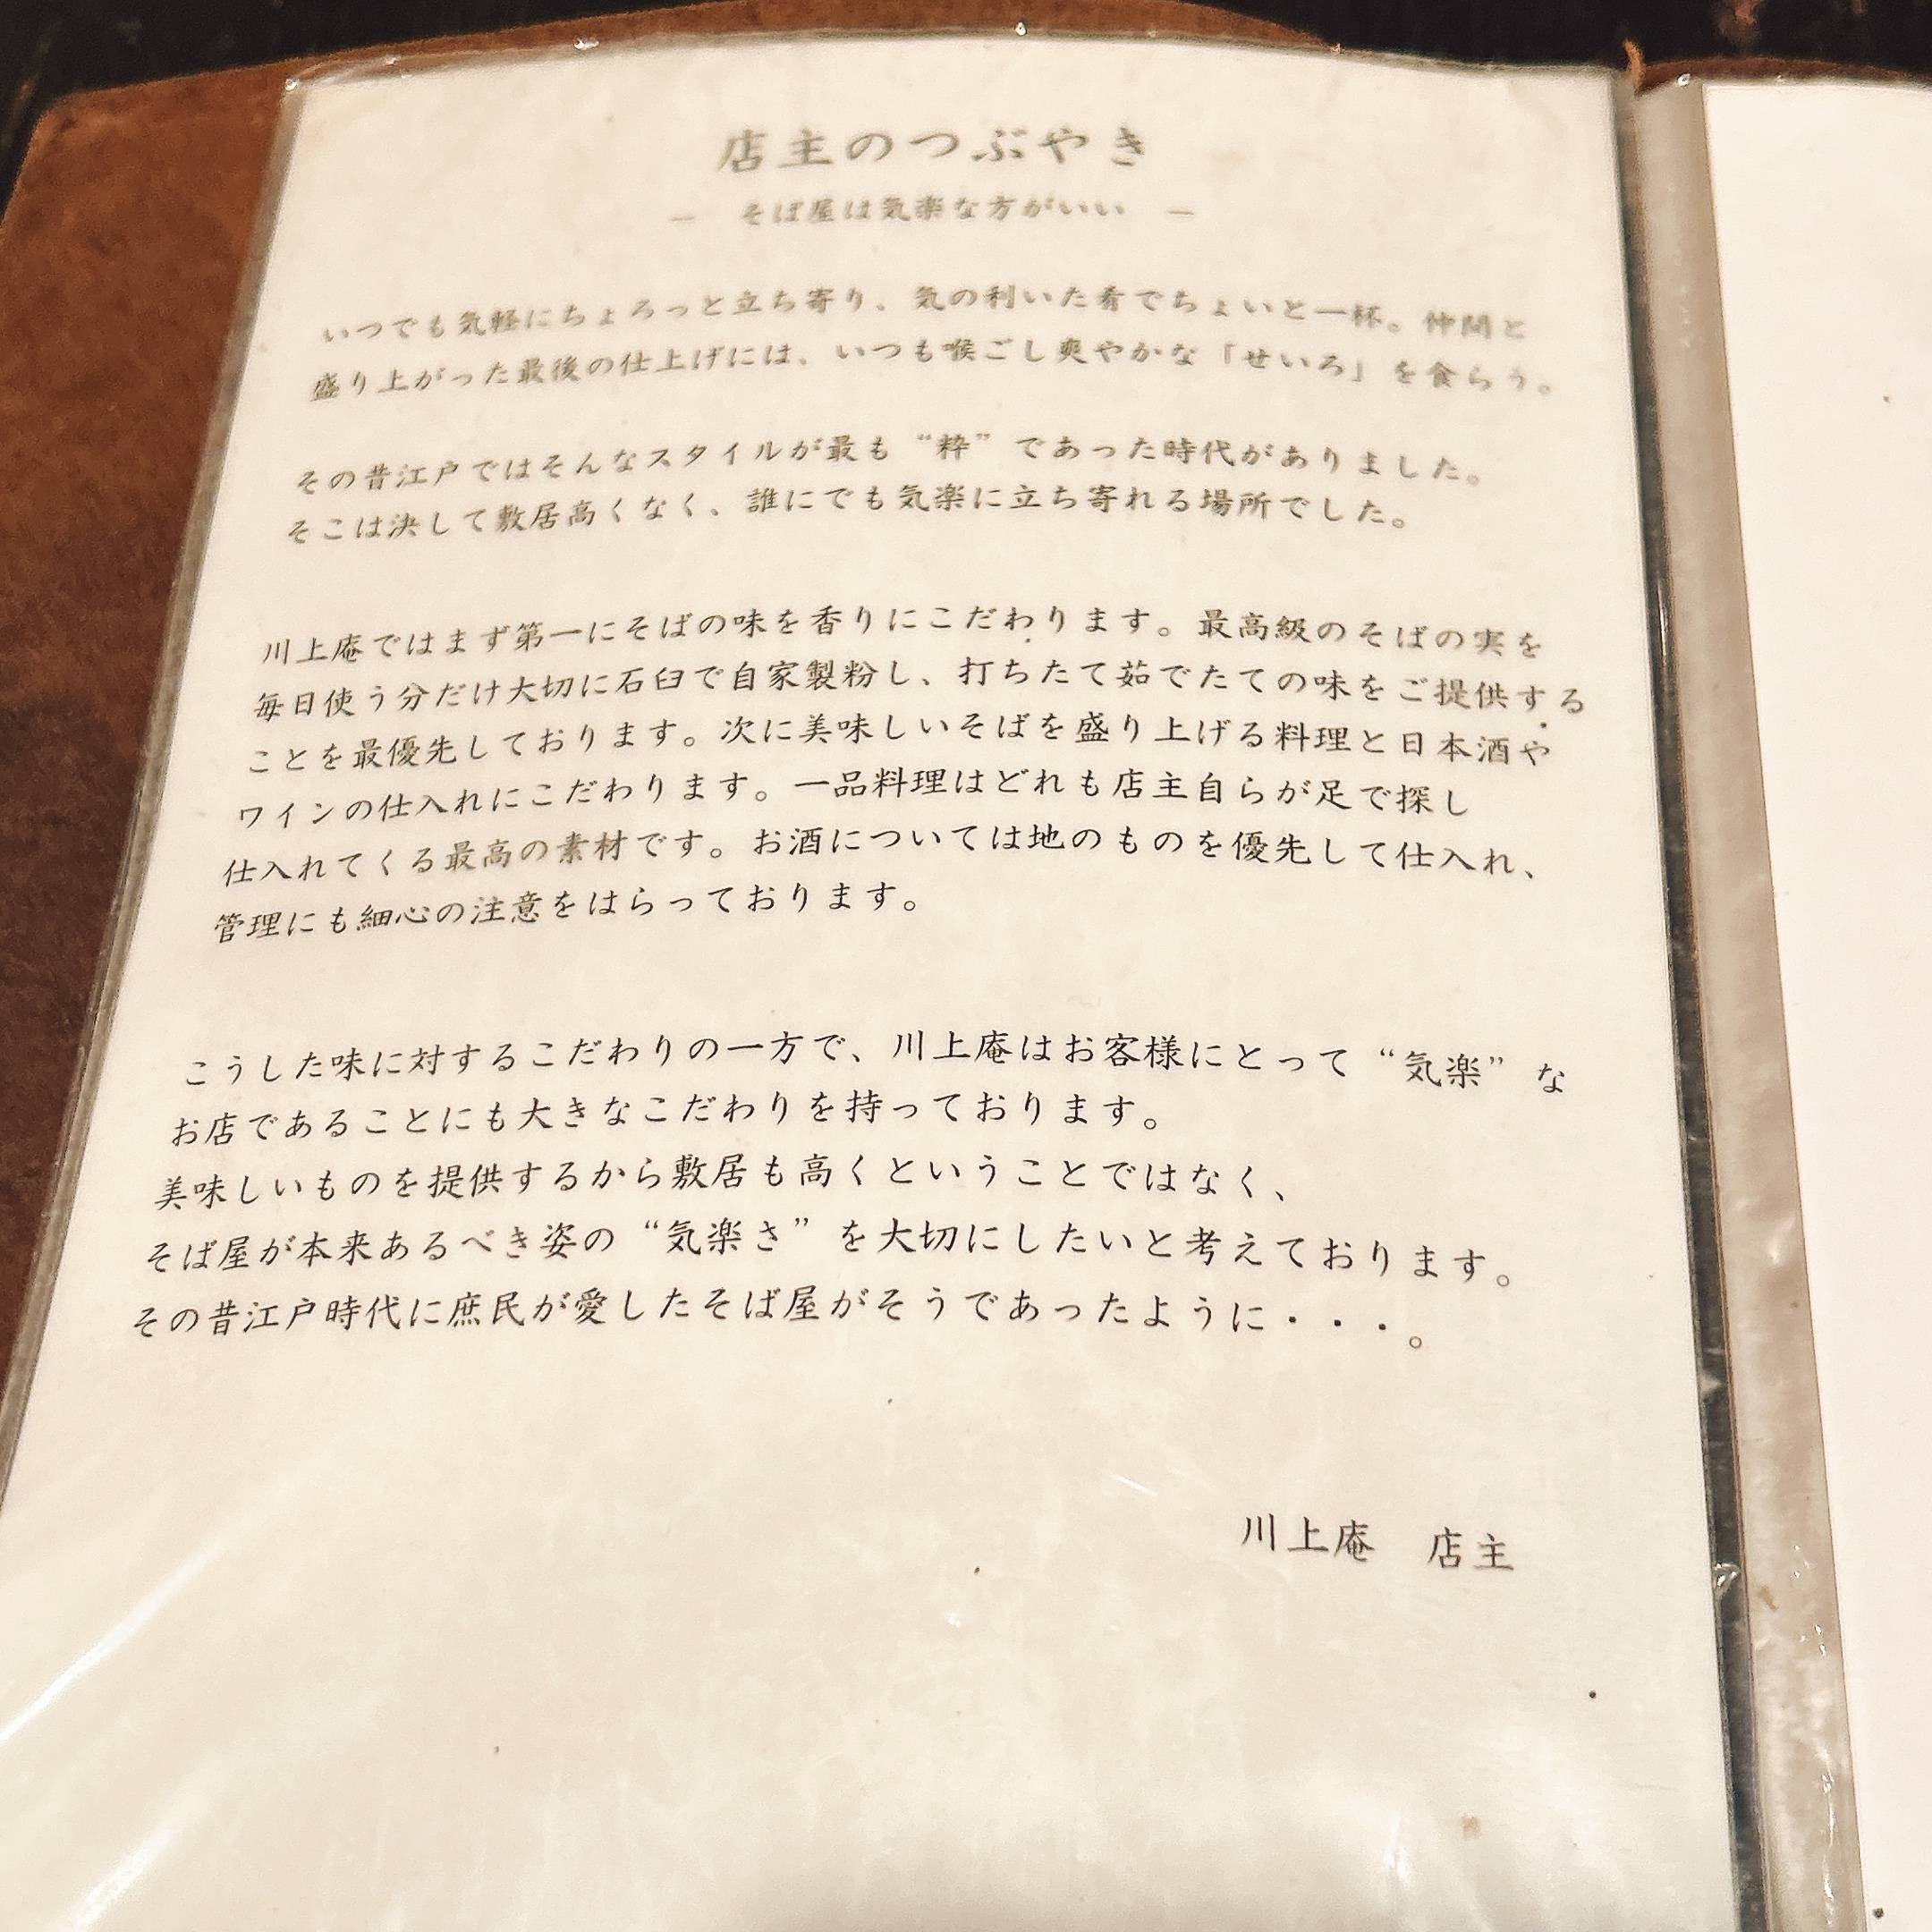 店主のつぶやき
― そば屋は気楽な方がいい ―
いつでも気軽にちょろっと立ち寄り、気の利いた肴でちょいと一杯。仲間と
盛り上がった最後の仕上げには、いつも喉ごし爽やかな「せいろ」を食らう。
その昔江戸ではそんなスタイルが最も“粋”であった時代がありました。
そこは決して敷居高くなく、誰にでも気楽に立ち寄れる場所でした。
川上庵ではまず第一にそばの味を香りにこだわります。最高級のそばの実を
毎日使う分だけ大切に石臼で自家製粉し、打ちたて茹でたての味をご提供する
ことを最優先しております。次に美味しいそばを盛り上げる料理と日本酒や
ワインの仕入れにこだわります。一品料理はどれも店主自らが足で探し
仕入れてくる最高の素材です。お酒については地のものを優先して仕入れ、
管理にも細心の注意をはらっております。
こうした味に対するこだわりの一方で、川上庵はお客様にとって“気楽”な
お店であることにも大きなこだわりを持っております。
美味しいものを提供するから敷居も高くということではなく、
そば屋が本来あるべき姿の“気楽さ”を大切にしたいと考えております。
その昔江戸時代に庶民が愛したそば屋がそうであったように・・・。
川上庵　店主